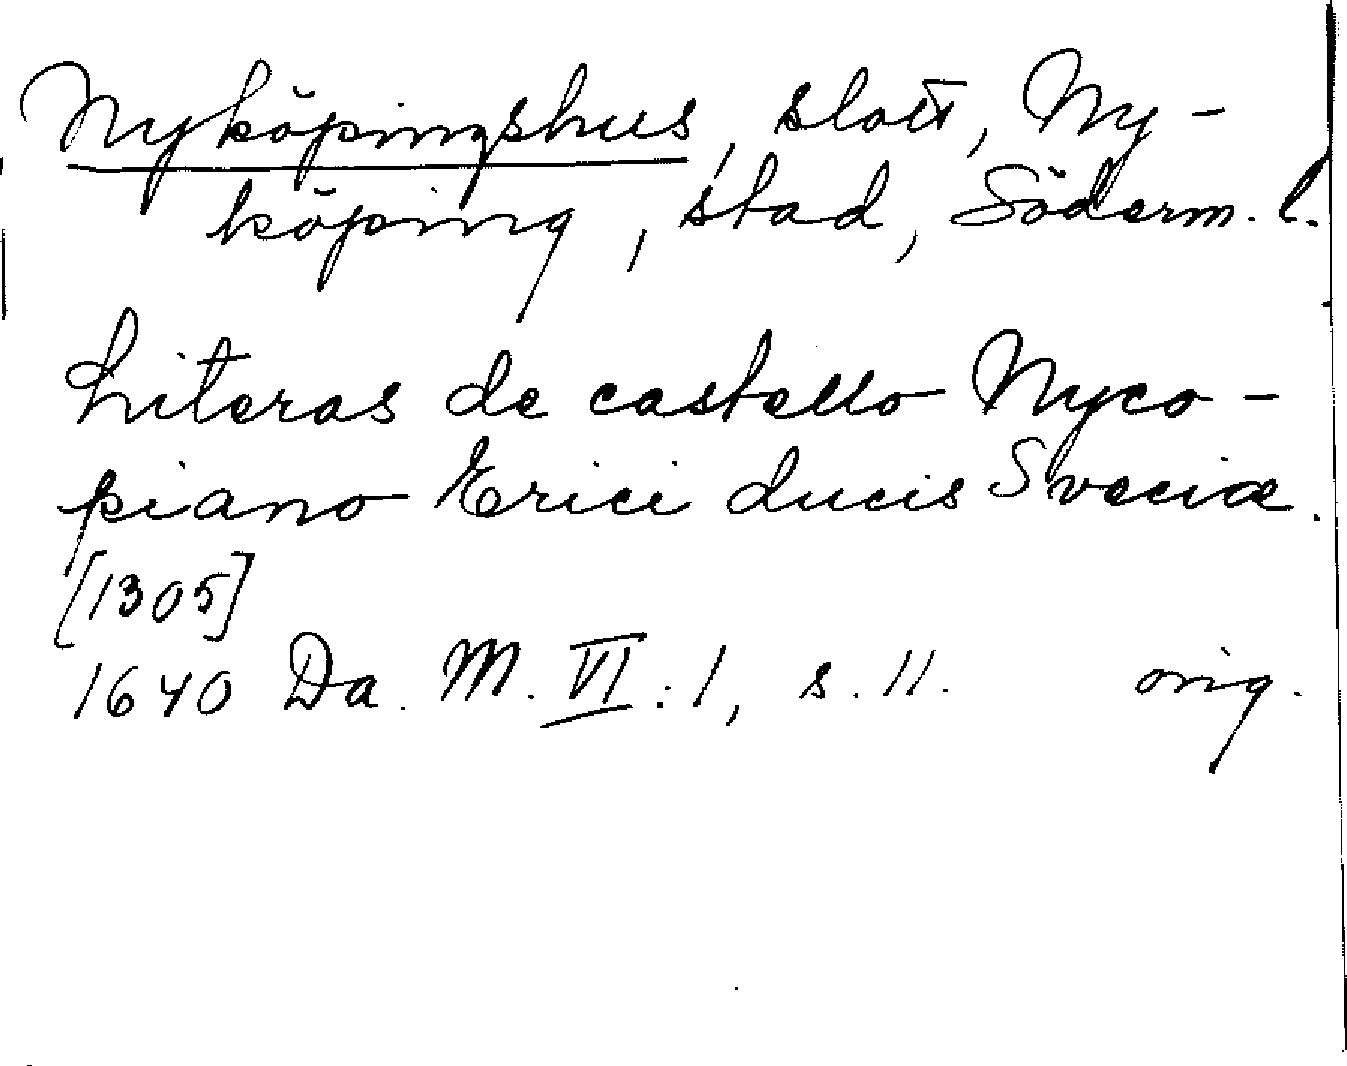 Nyköpingshus, slott, Ny-
köping, stad, Söderm. l.
Literas de castello Nyco-
piano Erici ducis Sveciæ.
[1305]
1640 Da. M. VI: 1, s. 11. orig.